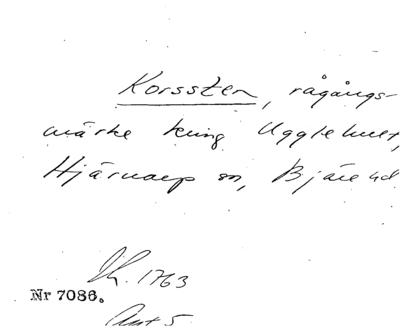 Korssten, rågångs-
märke kring Ugglehult,
Hjärnarp sn, Bjäre hd
1763
Nr 7086.